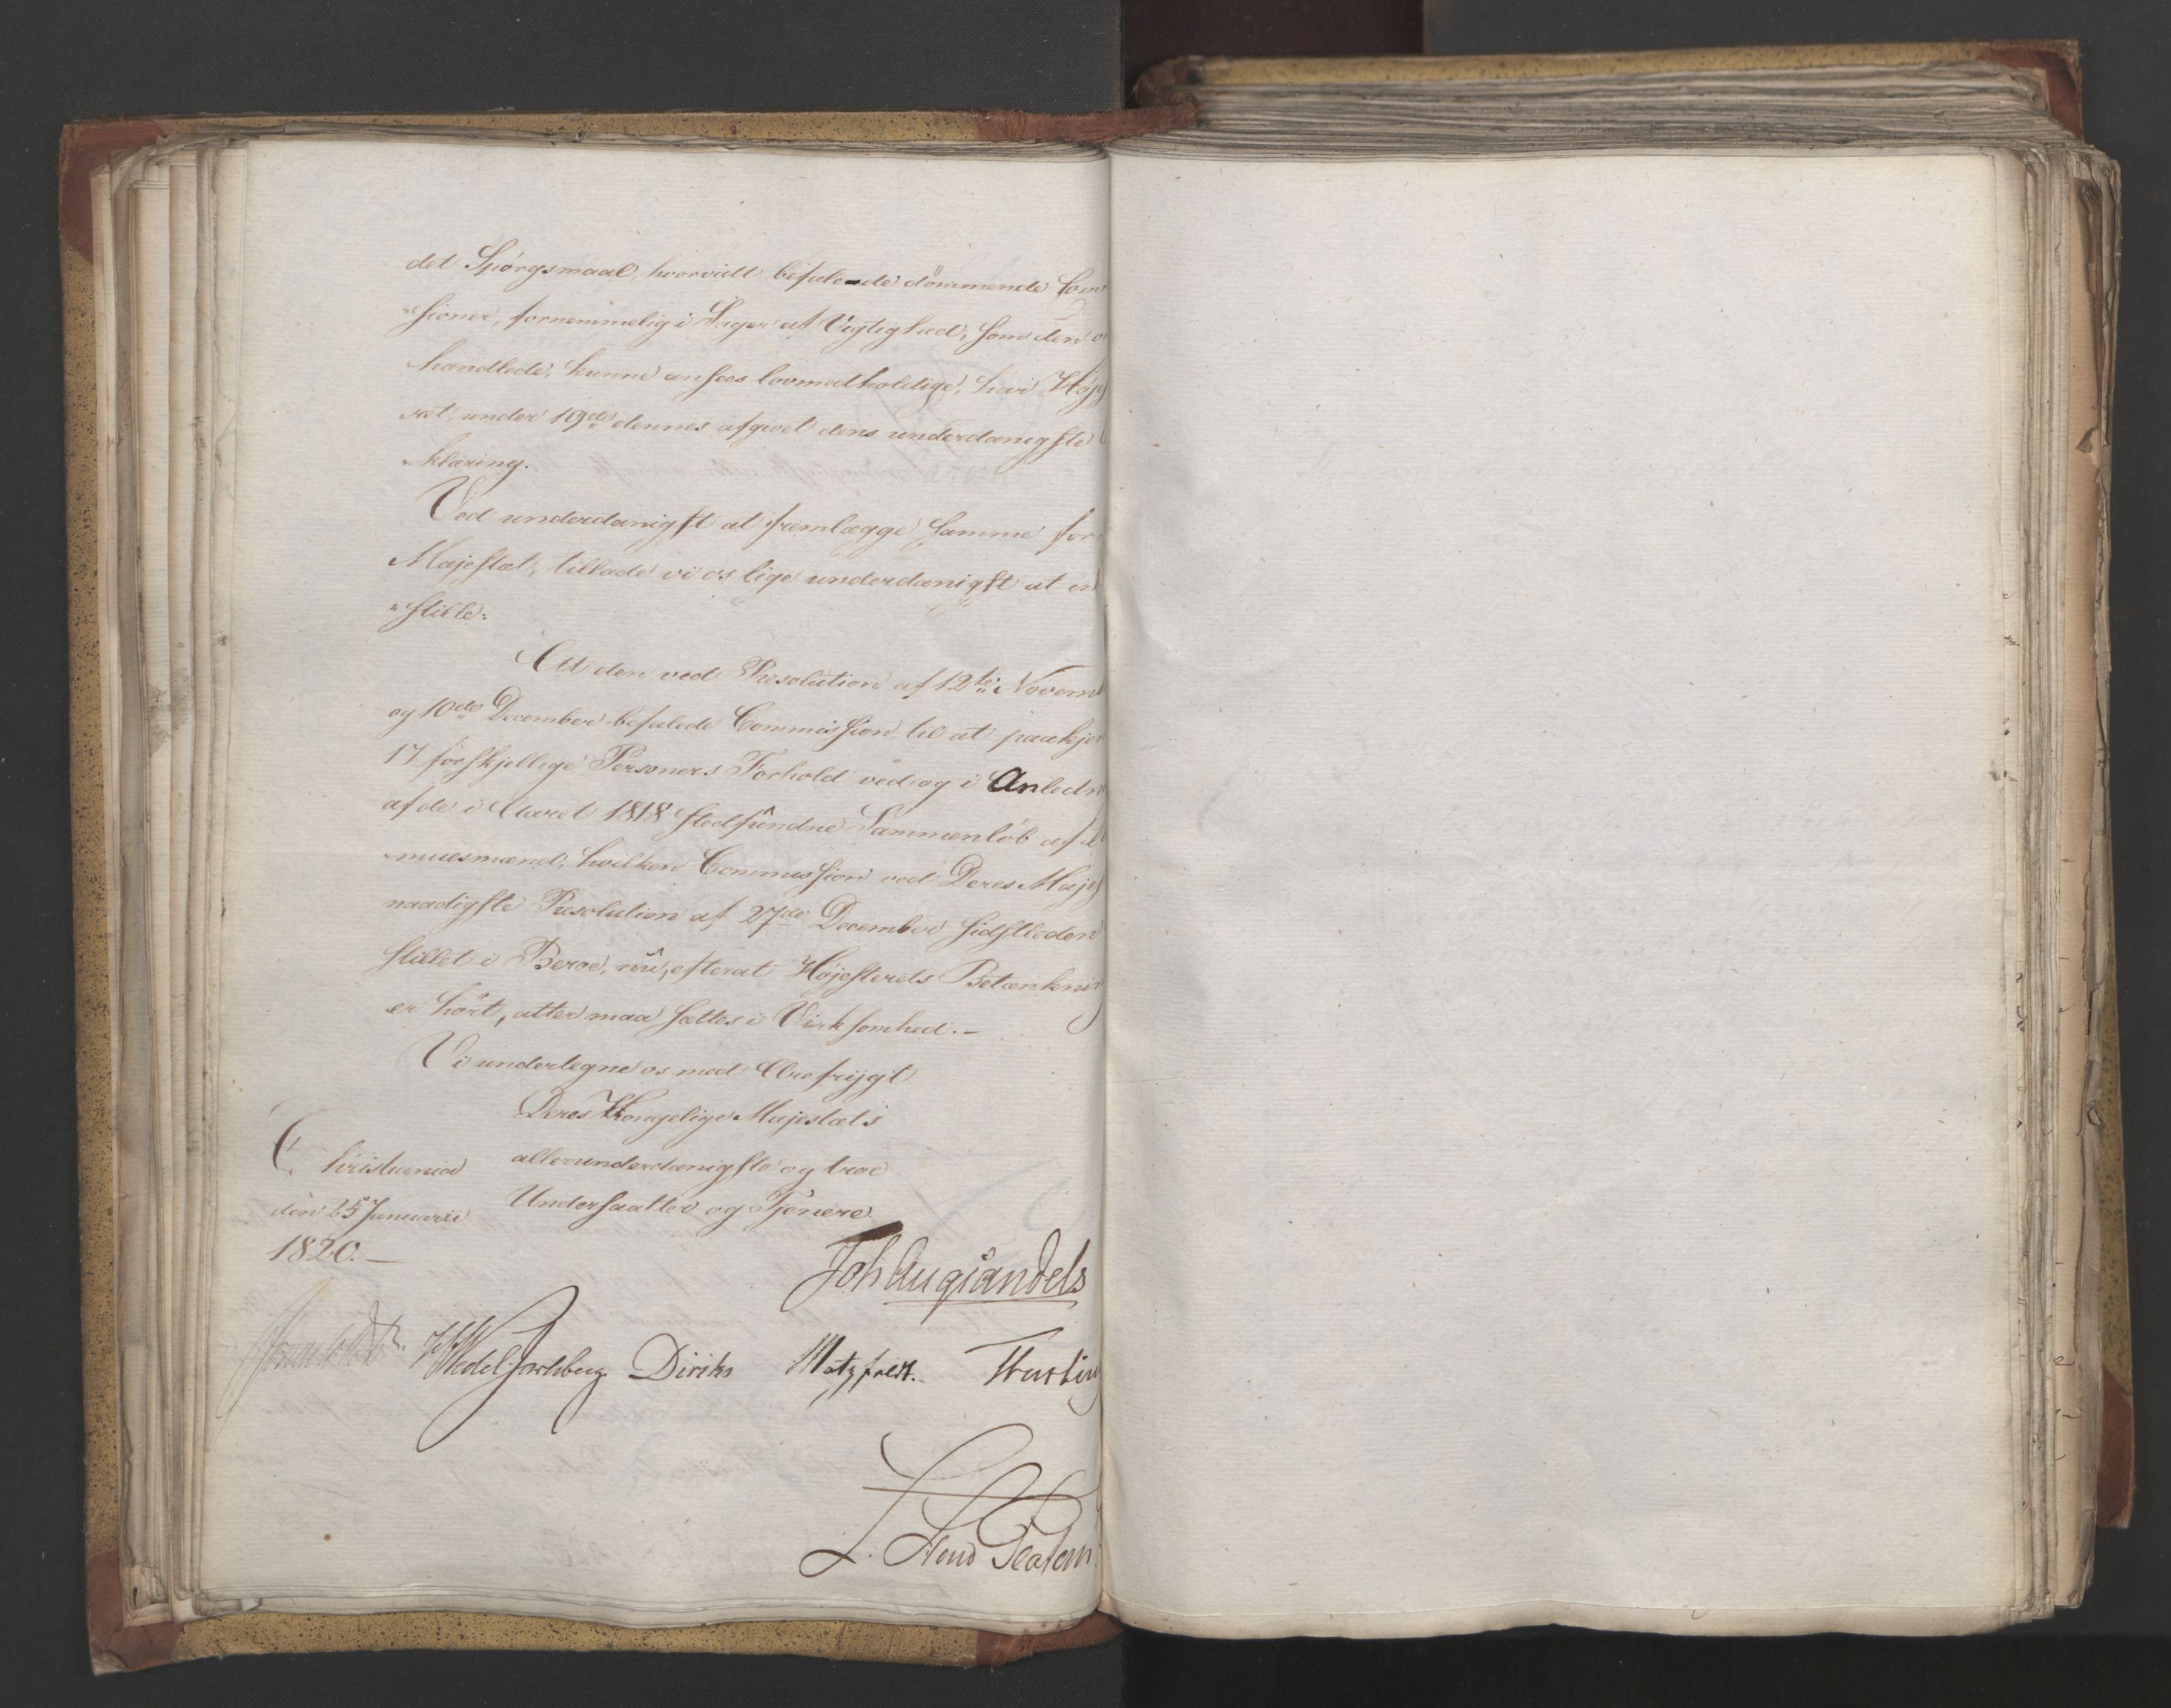 det Spörgsmaal, hvorvidt befalede dömmende Com
"sioner, fornemmelig i Sager af Vigtighed, som den o
"handlede, kunne ansees lovmedholdige, har Høje
"ret, under 19de dennes afgivet dens underdanigste
"klæring.
Ved underdanigst at fremlægge samme for
Majestæt, tillade vi os lige underdanigst at in
"stille:
At den ved Resolution af 12te Novemb
og 10de December befalede Commission til at paakje
17 forskjellige Personers Forhold ved og i Anledn
af de i Aaret 1818 stedfundne Sammenløb af Al
"muesmænd, hvilken Commission ved Deres Majes
naadigste Resolution af 27de December sidstleden
stillet i Beroe, nu, efterat Højesterets Betænknin
er hört, atter maa sættes i Virksomhed.-
Vi undertegne os med Ærefrygt
Deres Kongelige Majestæts
Christiania allerunderdanigste og troe
den 25 Januarii Undersaatter og Tjenere.
1820.-
Joh Aug Sandels
Sommerhielm HWedel Jarlsberg Diriks Motzfeldt. Fasting
L. Stoud Platou